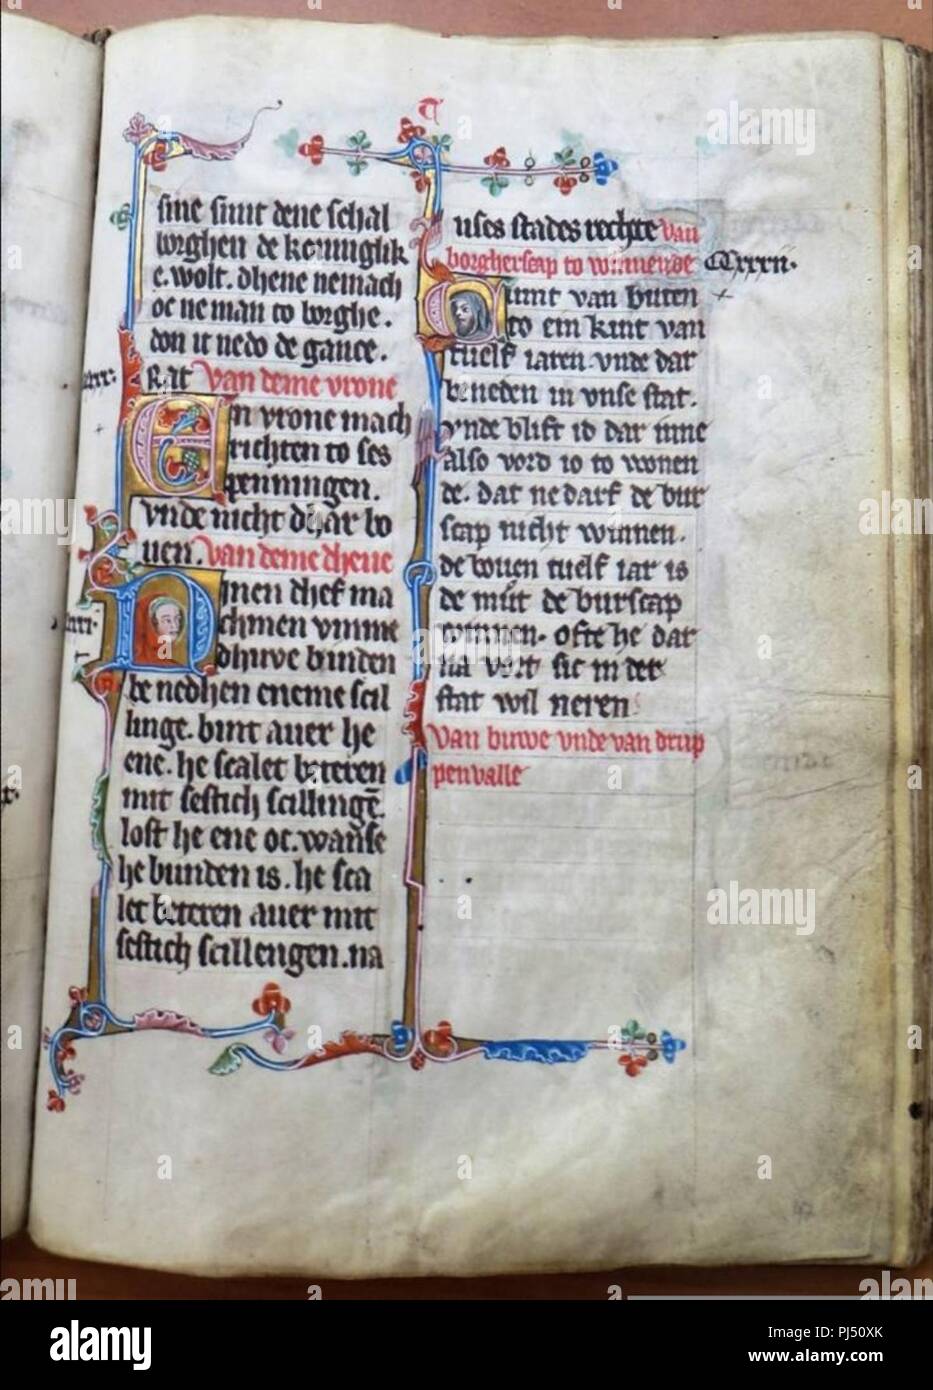 sine sint dene schal
borghen de koninghk
e. wolt. dhene nemach
oc neman to borghe.
don it nedo de gance.
Rat van deme vrone
En vrone mach
richten to ses
penningen.
vnde nicht dhar bo
uen. van deme dheue
Nmen dhef ma
chmen vmme
dhuve binden
be nedhen eneme scil
linge. bint auer he
ene. he scalet beteren
mit sestich scillinge.
lost he ene oc. wanse
he bunden is. he sca
let beteren auer mit
sestich scillengen. na
uses stades rechte van
borgherscap to winnende CCxxxii.
Cumt van buten
to ein kint van
tuelf iaren vnde dar
beneden in vnse stat.
vnde blift id dar inne
also vord io to wonen
de. dat ne darf de bur
scap nicht winnen.
de bouen tuelf iar is
de mut de burscap
winnen. ofte he dar
na vort sic in der
stat wil neren
van buwe vnde van drup
penvalle
alamy
Image ID: PJ50XK
www.alamy.com